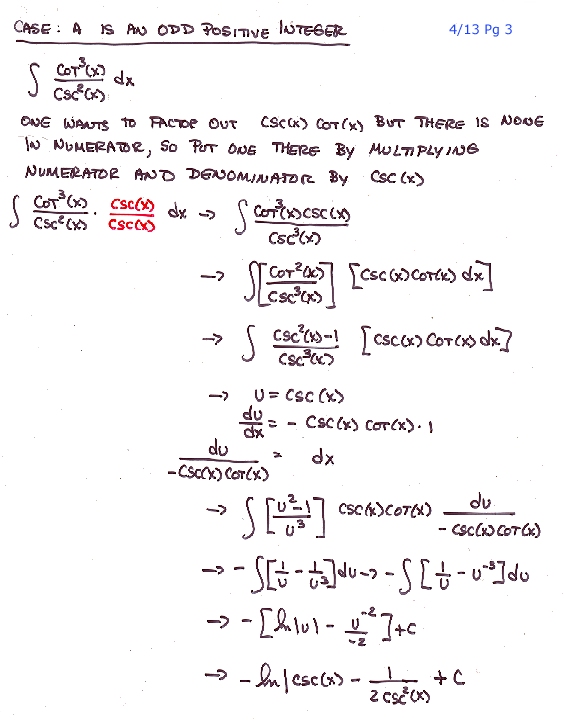 CASE: A IS AN ODD POSITIVE INTEGER 4/13 Pg 3
∫ COT³(x)/CSC²(x) dx
ONE WANTS TO FACTOR OUT CSC(x) COT(x) BUT THERE IS NONE
IN NUMERATOR, SO PUT ONE THERE BY MULTIPLYING
NUMERATOR AND DENOMINATOR BY CSC(x)
∫ COT³(x)/CSC²(x) · CSC(x)/CSC(x) dx → ∫ COT³(x)CSC(x)/CSC³(x)
→ ∫[COT²(x)/CSC³(x)] [CSC(x)COT(x) dx]
→ ∫ CSC²(x)-1/CSC³(x) [CSC(x) COT(x) dx]
→ U = CSC(x)
du/dx = - CSC(x) COT(x) · 1
du/-CSC(x)COT(x) = dx
→ ∫ [U²-1/U³] CSC(x)COT(x) du/-CSC(x)COT(x)
→ -∫[1/U - 1/U³]du → -∫[1/U - U⁻³]du
→ -[ln|U| - U⁻²/-2]+C
→ -ln|CSC(x) - 1/2CSC²(x) + C